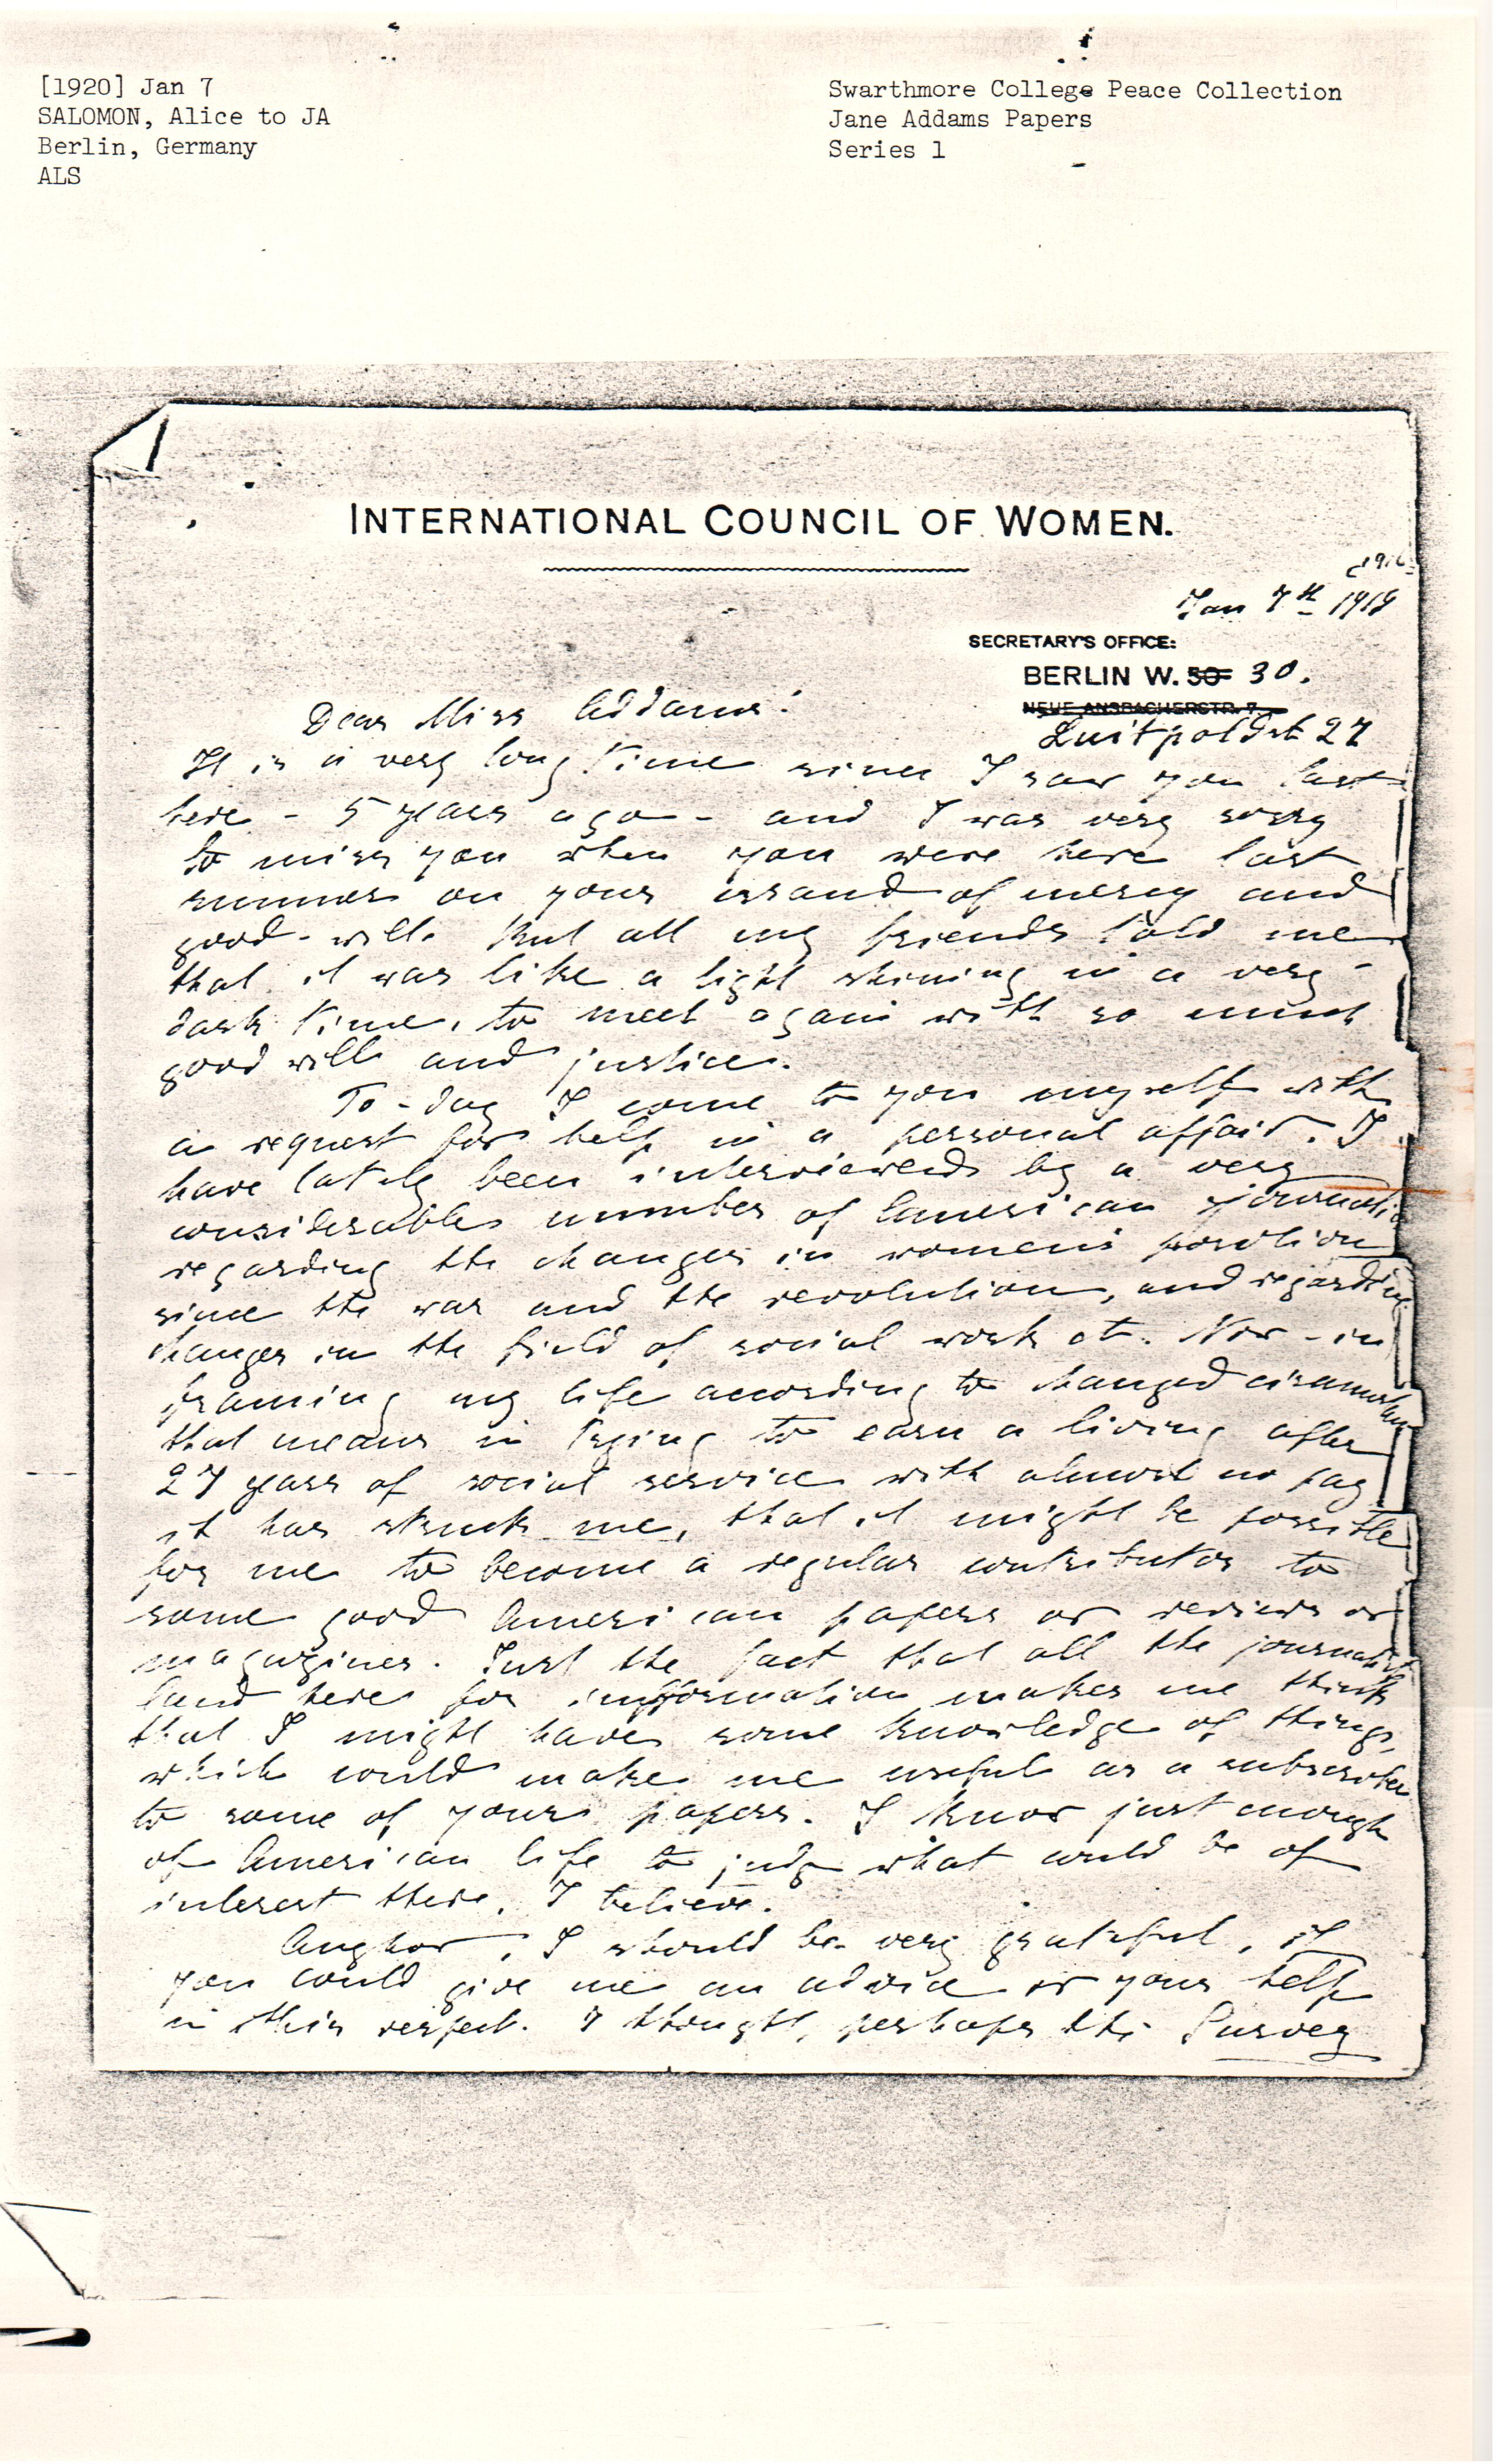 [1920] Jan 7
SALOMON, Alice to JA
Berlin, Germany
ALS
Swarthmore College Peace Collection
Jane Addams Papers
Series 1
INTERNATIONAL COUNCIL OF WOMEN.
Jan 7th 1919
SECRETARY'S OFFICE:
BERLIN W. 50 30.
NEUE ANSBACHERSTR. 7.
Luitpoldstr 27
Dear Miss Addams!
It is a very long time since I saw you last
here - 5 years ago - and I was very sorry
to miss you when you were here last
summer on your errand of mercy and
good-will. But all my friends told me
that it was like a light shining in a very
dark time, to meet again with so much
good will and justice.
To-day I come to you myself with
a request for help in a personal affair. I
have lately been interviewed by a very
considerable number of American journalis
regarding the changes in women's position
since the war and the revolution, and regarding
changes in the field of social work etc. Now - in
framing my life according to changed circumstan
that means in trying to earn a living after
27 years of social service with almost no pay
it has struck me, that it might be possible
for me to become a regular contributor to
some good American papers or reviews or
magazines. Just the fact that all the journalists
land here for information makes me think
that I might have some knowledge of things,
which could make me useful as a subscriber
to some of your papers. I know just enough
of American life to judge what would be of
interest there, I believe.
Anyhow, I should be very grateful, if
you could give me an advice or your help
in this respect. I thought, perhaps the Survey